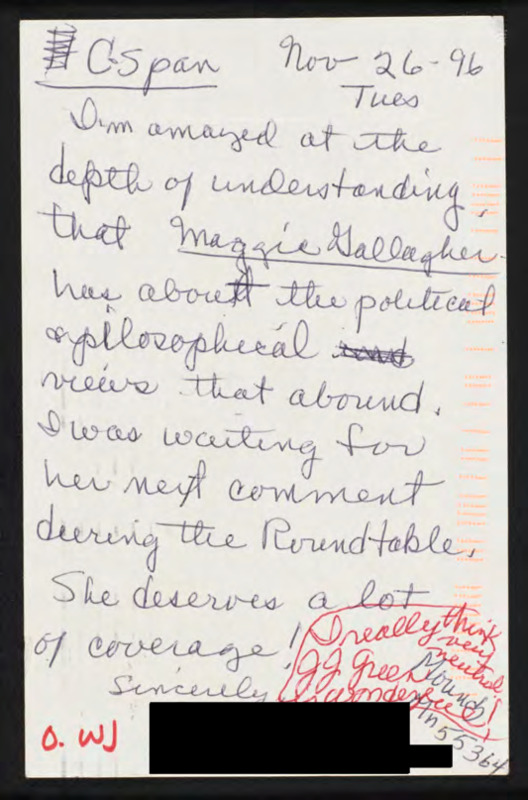 C-Span Nov 26-96
Tues
I'm amazed at the
depth of understanding
that Maggie Gallagher
has about the political
& pilosophical
views that abound.
I was waiting for
her next comment
during the Roundtable.
She deserves a lot
of coverage!
Sincerely
I really think
very
neutral!
JJ Green
is wonderful!
Mound,
Mn 55364
O. WJ